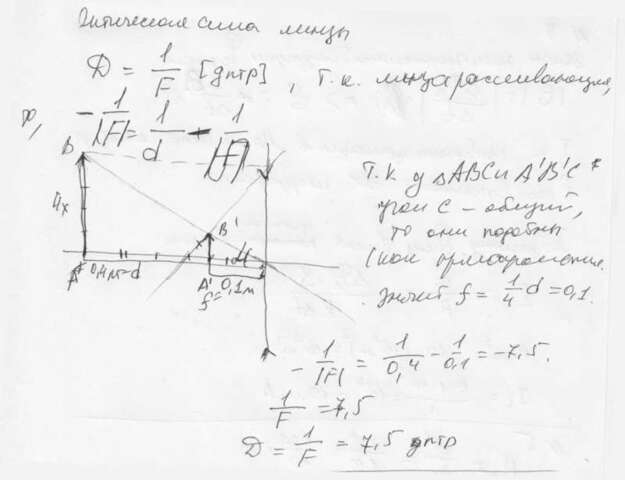 Оптическая сила линзы
D = 1/F [дптр], т.к. линза рассеивающая,
то,
-1/|F| = 1/d - 1/|f|
B
4x
A
0,4м=d
B'
x
A'
f=0,1м
C
Т.к у △ABC и A'B'C
угол C – общий,
то они подобны
(как прямоугольные.
Значит f = 1/4 d = 0,1.
-1/|F| = 1/0,4 - 1/0,1 = -7,5.
1/F = 7,5
D = 1/F = 7,5 дптр